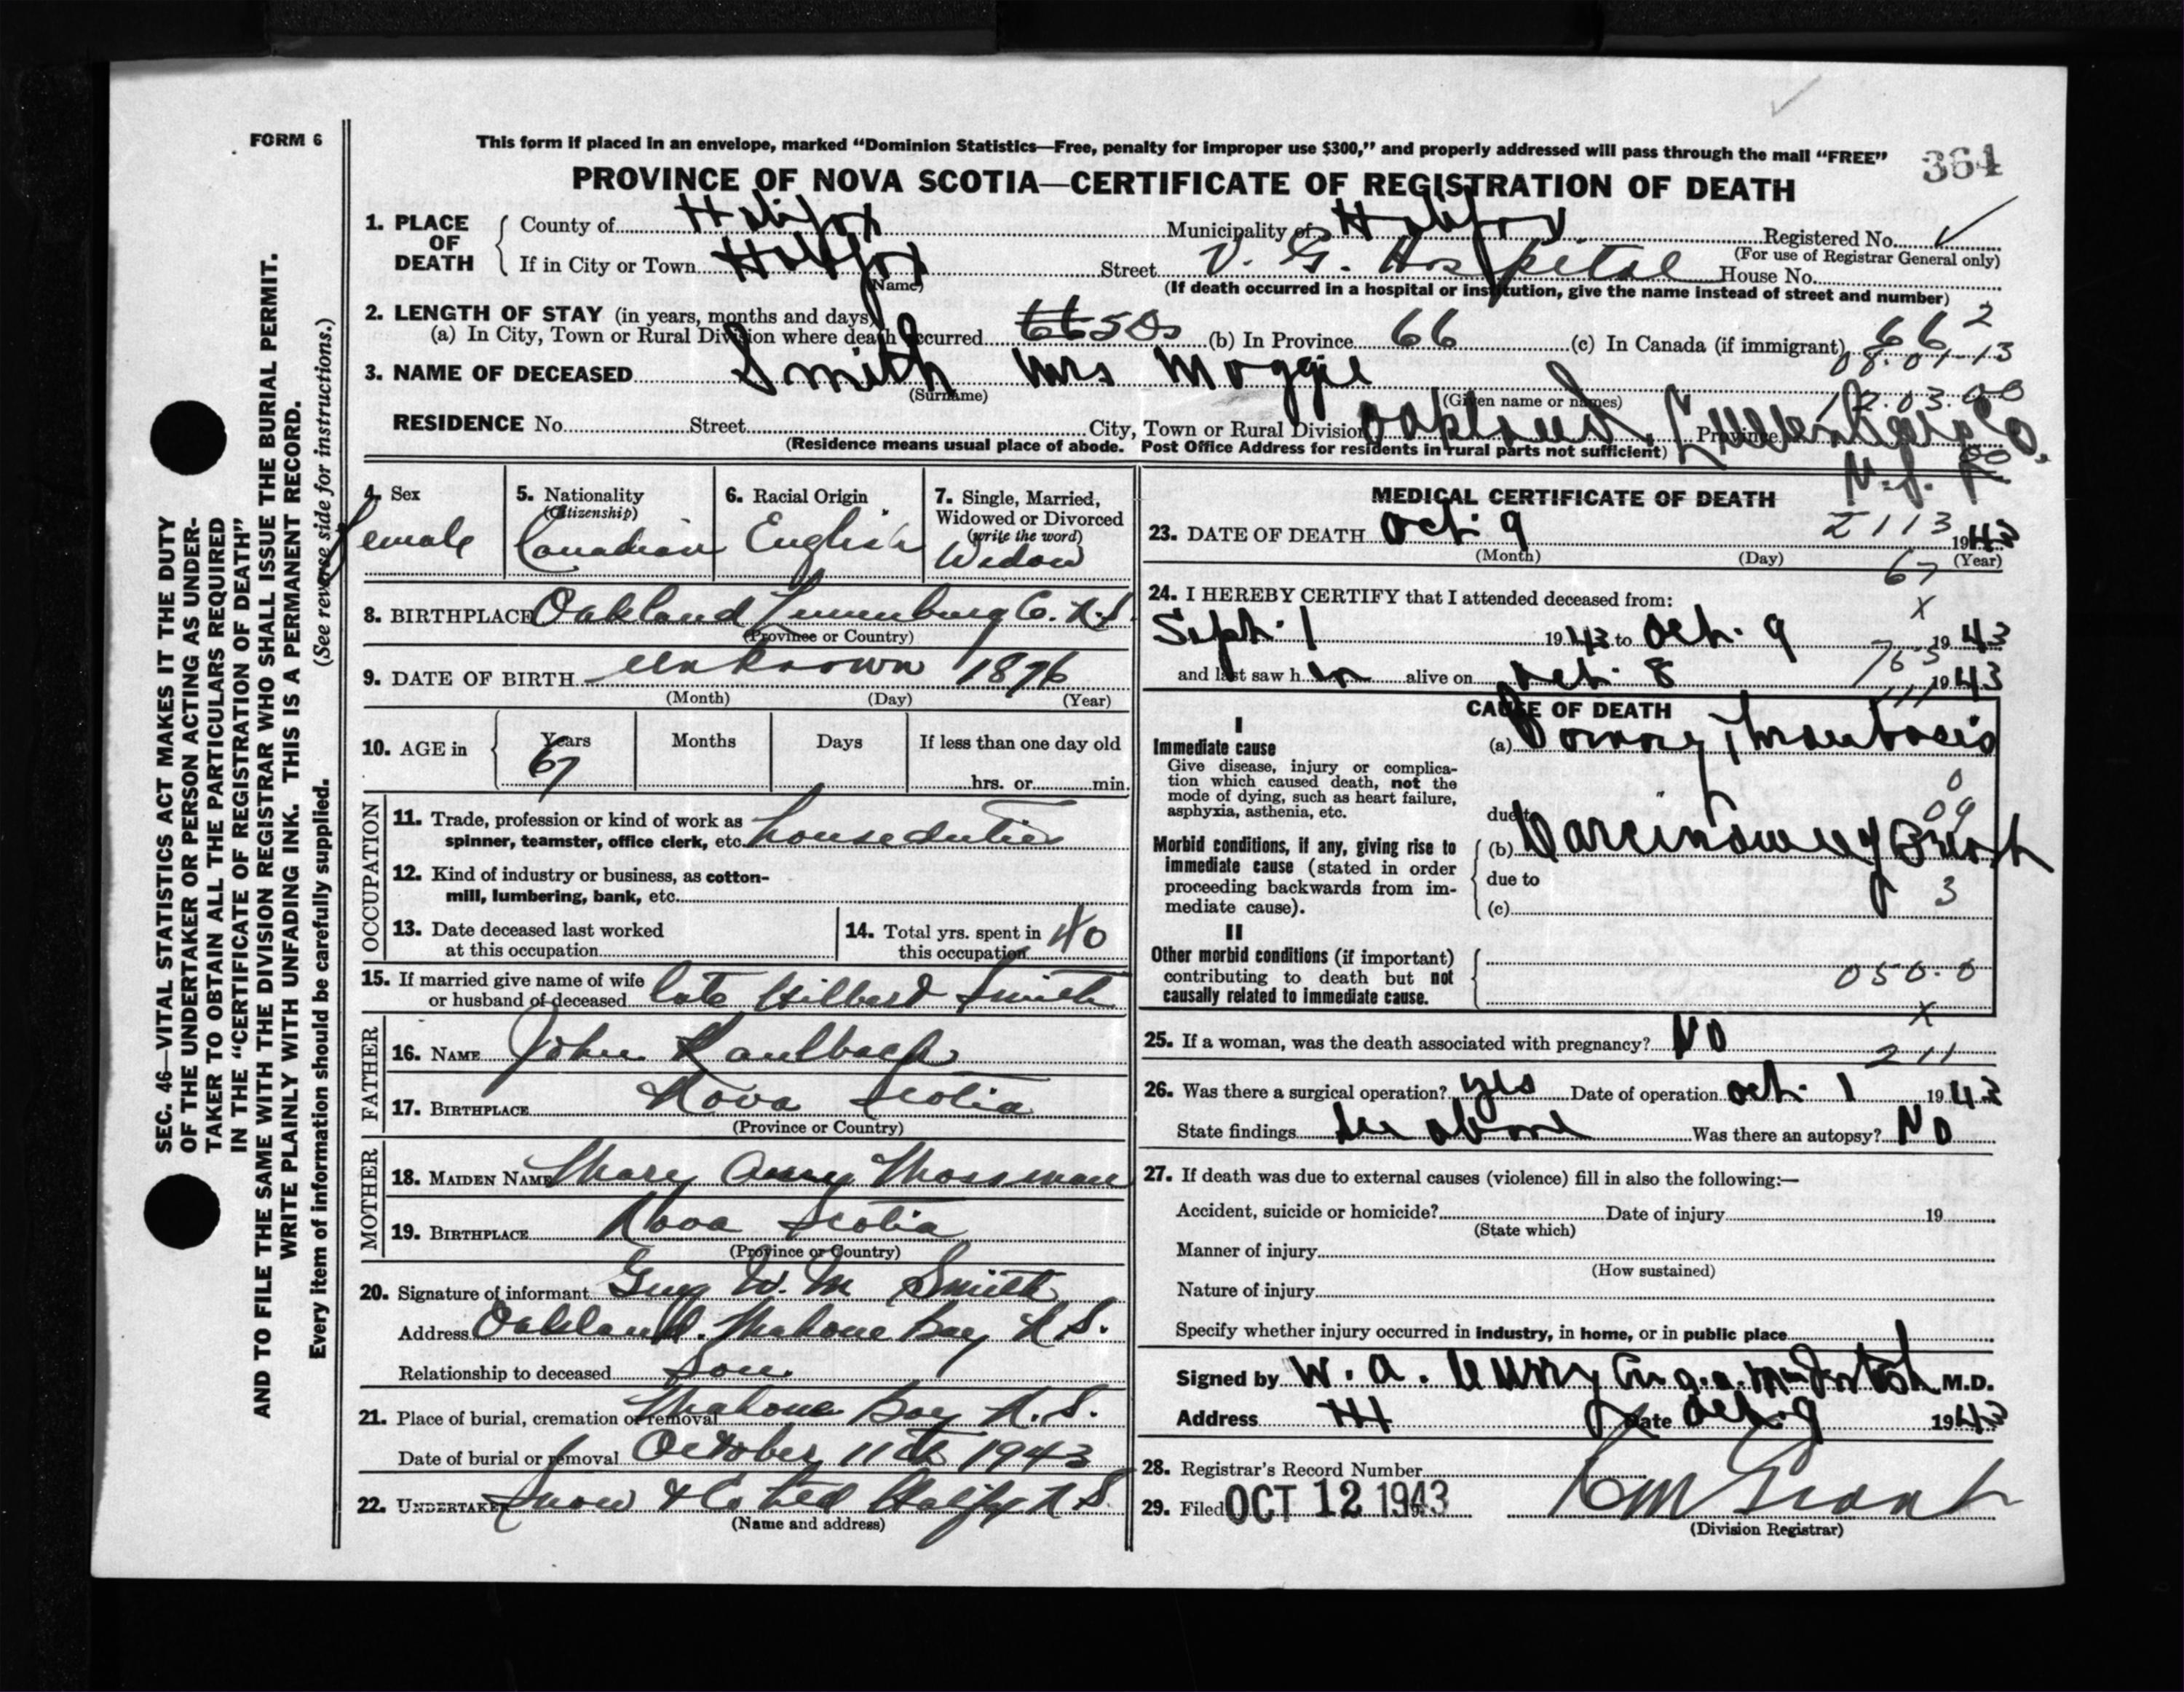 FORM 6
This form if placed in an envelope, marked “Dominion Statistics—Free, penalty for improper use $300,” and properly addressed will pass through the mail “FREE”
364
PROVINCE OF NOVA SCOTIA—CERTIFICATE OF REGISTRATION OF DEATH
1. PLACE OF DEATH
County of Halifax Municipality of Halifax Registered No.
(For use of Registrar General only)
If in City or Town Halifax Street V. G. Hospital House No.
(Name) (If death occurred in a hospital or institution, give the name instead of street and number)
2. LENGTH OF STAY (in years, months and days)
(a) In City, Town or Rural Division where death occurred (b) In Province 66 (c) In Canada (if immigrant) 66 2
08.01-13
3. NAME OF DECEASED Smith Mrs Maggie
(Surname) (Given name or names)
12.03.00
RESIDENCE No. Street City, Town or Rural Division Oakland, Lunenburg Co. Province
(Residence means usual place of abode. Post Office Address for residents in rural parts not sufficient) N.S.
4. Sex Female
5. Nationality (Citizenship) Canadian
6. Racial Origin English
7. Single, Married, Widowed or Divorced (write the word) Widow
8. BIRTHPLACE Oakland Lunenburg Co. N.S.
(Province or Country)
9. DATE OF BIRTH unknown 1876
(Month) (Day) (Year)
10. AGE in Years 67 Months Days If less than one day old
hrs. or min.
OCCUPATION
11. Trade, profession or kind of work as
spinner, teamster, office clerk, etc. house duties
12. Kind of industry or business, as cotton-
mill, lumbering, bank, etc.
13. Date deceased last worked
at this occupation
14. Total yrs. spent in
this occupation 40
15. If married give name of wife
or husband of deceased late Hilbert Smith
FATHER
16. NAME John Kaulback
17. BIRTHPLACE Nova Scotia
(Province or Country)
MOTHER
18. MAIDEN NAME Mary Mossman
19. BIRTHPLACE Nova Scotia
(Province or Country)
20. Signature of informant Guy W. M Smith
Address Oakland. Mahone Bay N S.
Relationship to deceased Son
21. Place of burial, cremation or removal Mahone Bay N. S.
Date of burial or removal October 11th 1943
22. UNDERTAKER Snow & Co Ltd Halifax N S
(Name and address)
MEDICAL CERTIFICATE OF DEATH
23. DATE OF DEATH Oct. 9 2113 1943
(Month) (Day) (Year)
67
24. I HEREBY CERTIFY that I attended deceased from:
X
Sept. 1 1943 to Oct. 9 1943
and last saw h alive on Oct. 8 1943
CAUSE OF DEATH
I
Immediate cause
Give disease, injury or complica-
tion which caused death, not the
mode of dying, such as heart failure,
asphyxia, asthenia, etc.
(a) Coronary Thrombosis
0
09
due to
Morbid conditions, if any, giving rise to
immediate cause (stated in order
proceeding backwards from im-
mediate cause).
(b) Carcinoma of Breast
due to
3
(c)
II
Other morbid conditions (if important)
contributing to death but not
causally related to immediate cause.
050.0
X
25. If a woman, was the death associated with pregnancy? NO
211
26. Was there a surgical operation? yes Date of operation Oct. 1 1943
State findings See above Was there an autopsy? NO
27. If death was due to external causes (violence) fill in also the following:—
Accident, suicide or homicide? Date of injury 19
(State which)
Manner of injury
(How sustained)
Nature of injury
Specify whether injury occurred in industry, in home, or in public place
Signed by W. A. Curry M.D.
Address Date Oct. 9 1943
28. Registrar's Record Number
29. Filed OCT 12 1943
(Division Registrar)
SEC. 46—VITAL STATISTICS ACT MAKES IT THE DUTY
OF THE UNDERTAKER OR PERSON ACTING AS UNDER-
TAKER TO OBTAIN ALL THE PARTICULARS REQUIRED
IN THE “CERTIFICATE OF REGISTRATION OF DEATH”
AND TO FILE THE SAME WITH THE DIVISION REGISTRAR WHO SHALL ISSUE THE BURIAL PERMIT.
WRITE PLAINLY WITH UNFADING INK. THIS IS A PERMANENT RECORD.
Every item of information should be carefully supplied. (See reverse side for instructions.)